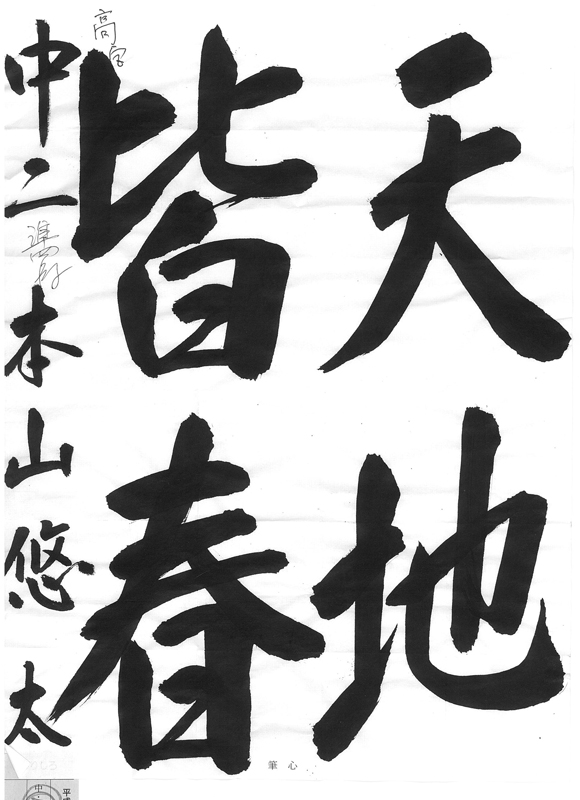 天地
皆春
中二 本山悠太
準四段
筆心
中